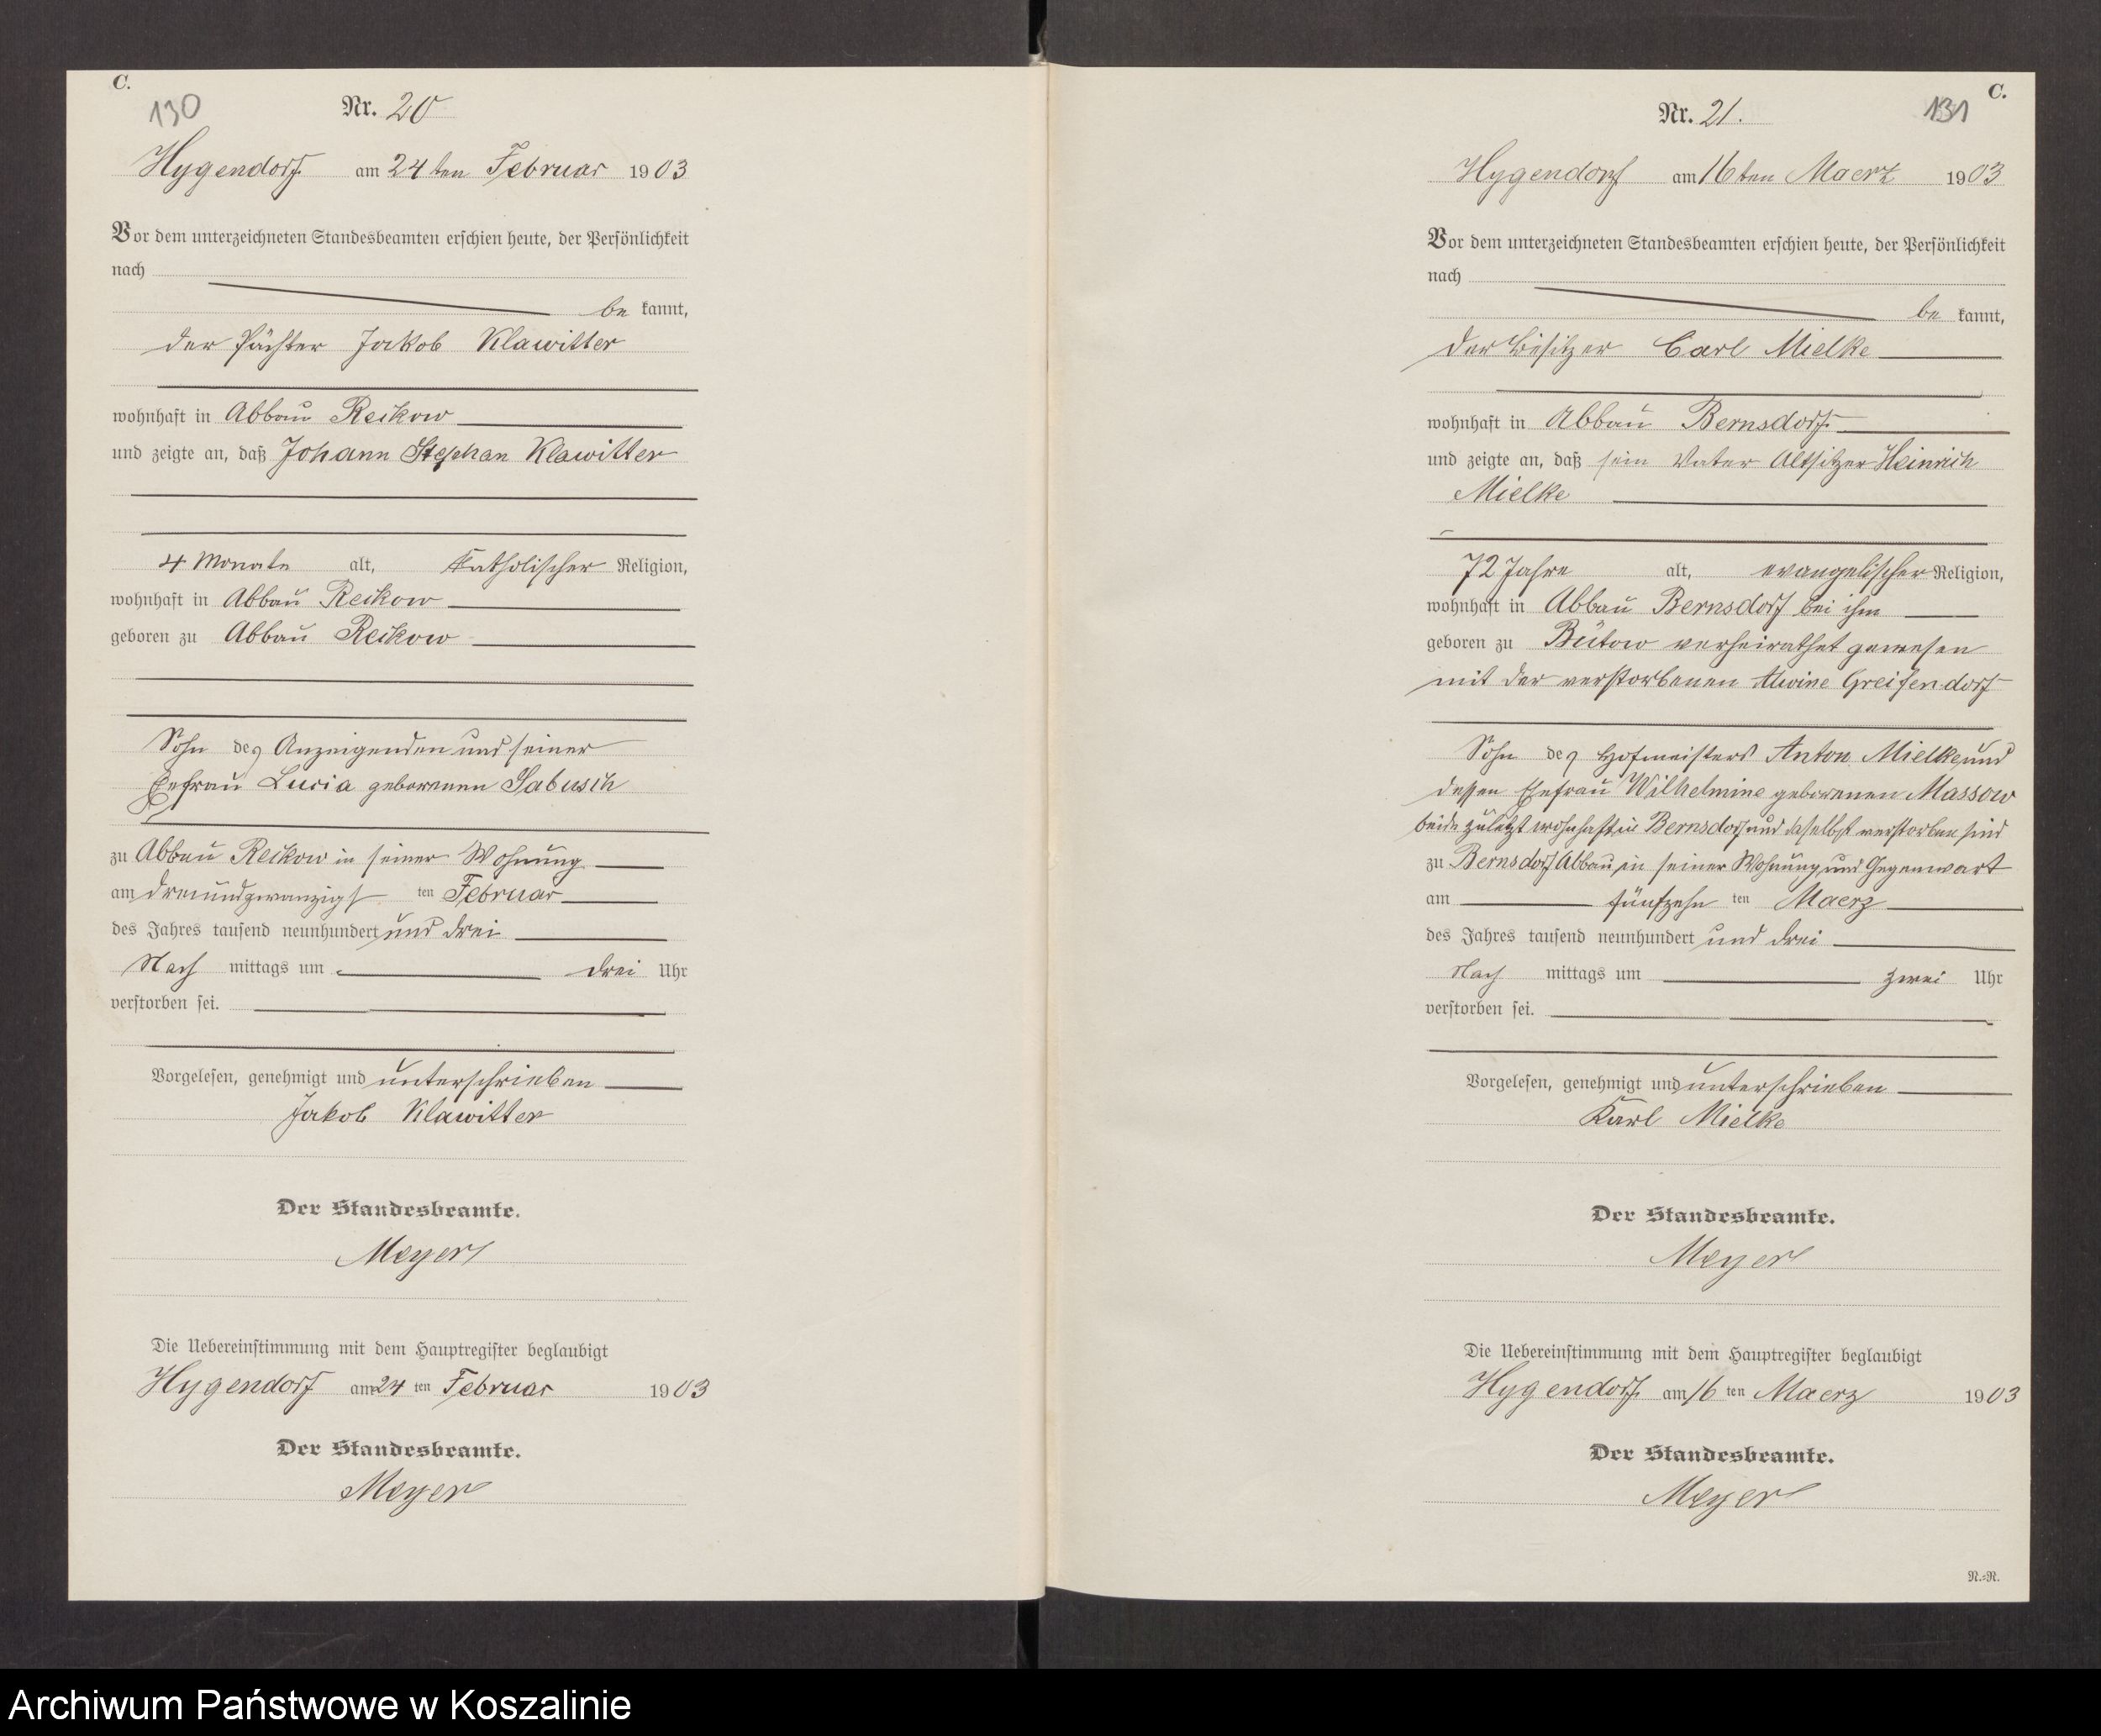 C.
130
Nr. 20
Hygendorf am 24ten Februar 1903
Vor dem unterzeichneten Standesbeamten erschien heute, der Persönlichkeit
nach
be kannt,
der Pächter Jakob Klawitter
wohnhaft in Abbau Reckow
und zeigte an, daß Johann Stephan Klawitter
4 Monate alt, katholischer Religion,
wohnhaft in Abbau Reckow
geboren zu Abbau Reckow
Sohn des Anzeigenden und seiner
Ehefrau Lucia geborenen Sabusch
zu Abbau Reckow in seiner Wohnung
am dreiundzwanzigsten Februar
des Jahres tausend neunhundert und drei
Nach mittags um drei Uhr
verstorben sei.
Vorgelesen, genehmigt und unterschrieben
Jakob Klawitter
Der Standesbeamte.
Meyer
Die Uebereinstimmung mit dem Hauptregister beglaubigt
Hygendorf am 24 ten Februar 1903
Der Standesbeamte.
Meyer
C.
131
Nr. 21.
Hygendorf am 16ten Maerz 1903
Vor dem unterzeichneten Standesbeamten erschien heute, der Persönlichkeit
nach
be kannt,
der Besitzer Carl Mielke
wohnhaft in Abbau Bernsdorf
und zeigte an, daß sein Vater Altsitzer Heinrich
Mielke
72 Jahre alt, evangelischer Religion,
wohnhaft in Abbau Bernsdorf bei ihm
geboren zu Bütow verheirathet gewesen
mit der verstorbenen Alwine Greifendorf
Sohn des Hofmeisters Anton Mielke und
dessen Ehefrau Wilhelmine geborenen Massow
beide zuletzt wohnhaft in Bernsdorf und daselbst verstorben sind
zu Bernsdorf Abbau, in seiner Wohnung und Gegenwart
am fünfzehn ten Maerz
des Jahres tausend neunhundert und drei
Nach mittags um zwei Uhr
verstorben sei.
Vorgelesen, genehmigt und unterschrieben
Karl Mielke
Der Standesbeamte.
Meyer
Die Uebereinstimmung mit dem Hauptregister beglaubigt
Hygendorf am 16 ten Maerz 1903
Der Standesbeamte.
Meyer
N.-R.
Archiwum Państwowe w Koszalinie